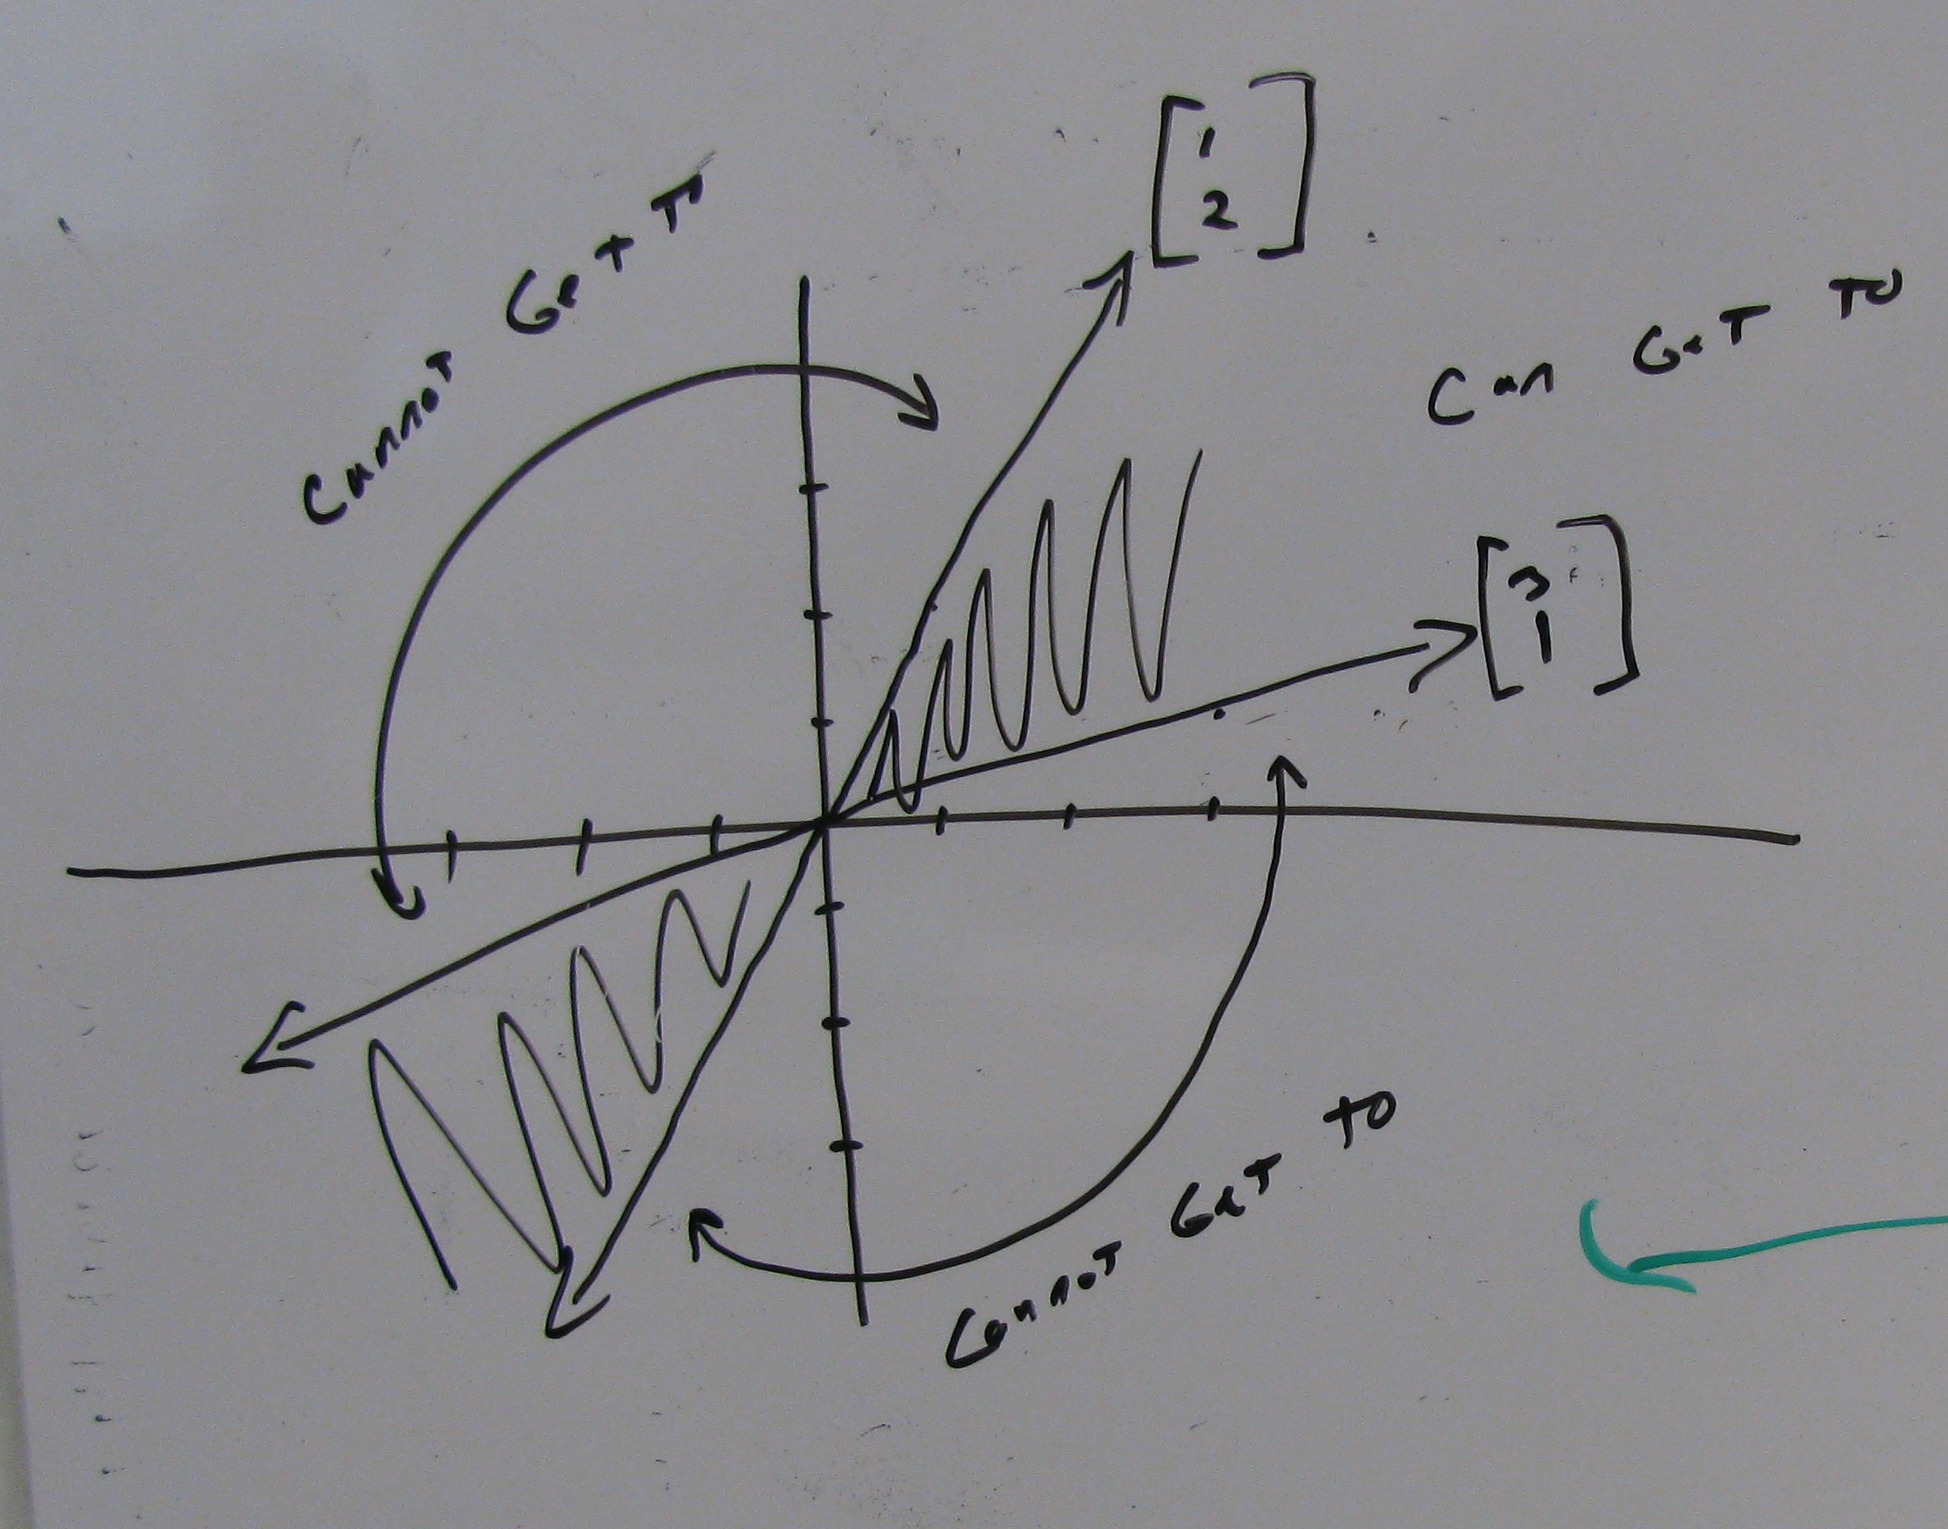 Cannot Get T
[1
2]
Can Get To
[3
1]
Cannot Get to